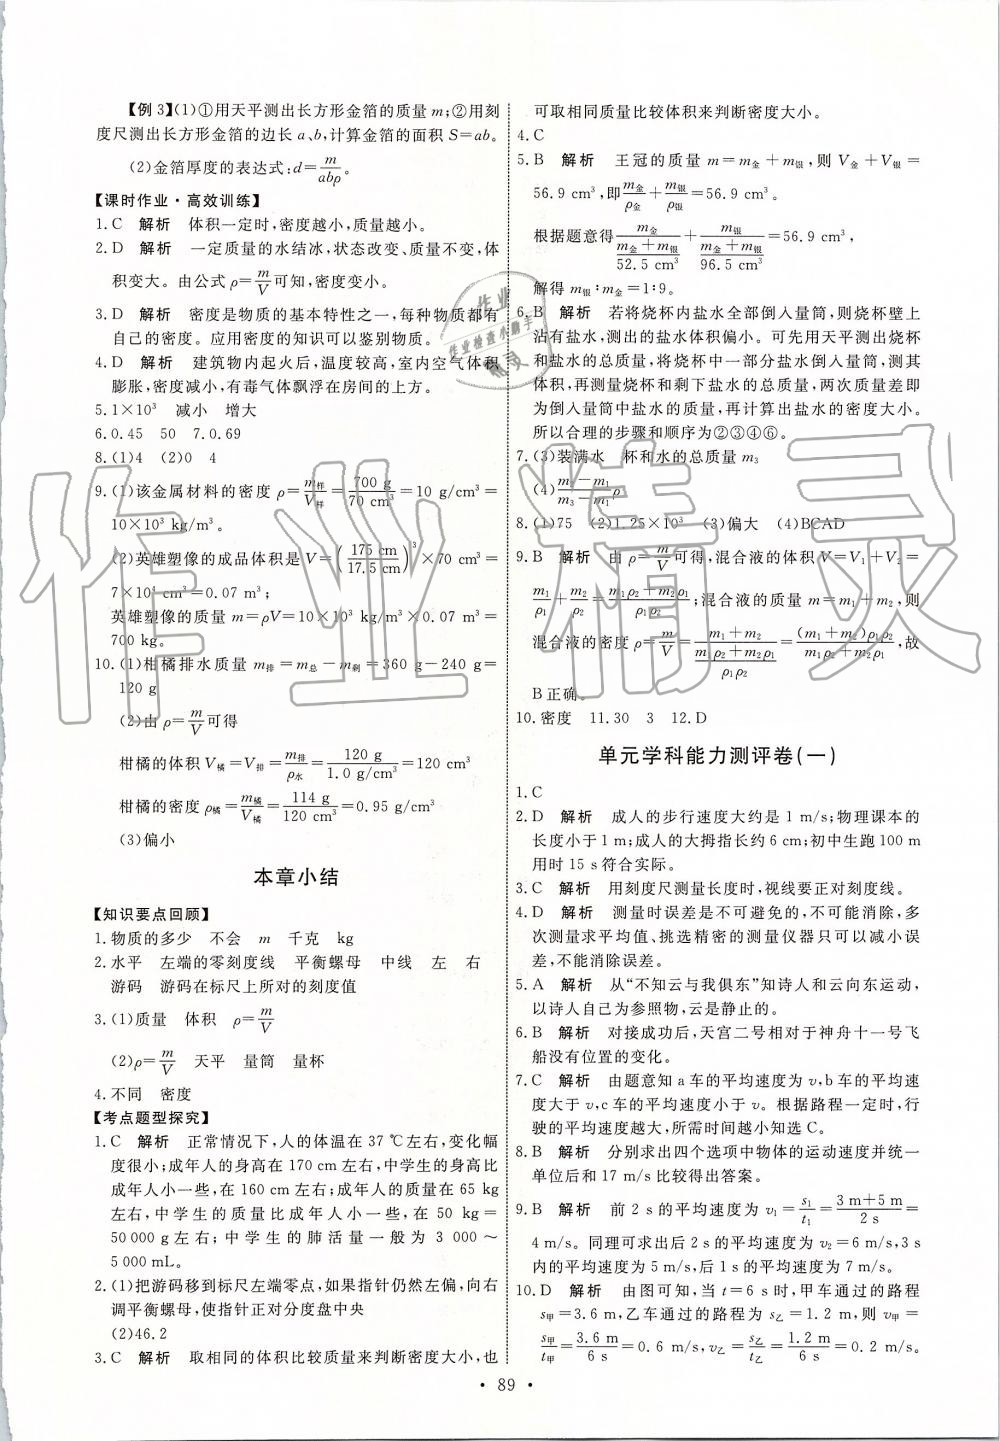 【例3】(1)①用天平测出长方形金箔的质量m;②用刻
度尺测出长方形金箔的边长a、b,计算金箔的面积S=ab。
(2)金箔厚度的表达式:d=m/abρ。
【课时作业·高效训练】
1.C 解析 体积一定时,密度越小,质量越小。
2.D 解析 一定质量的水结冰,状态改变、质量不变,体
积变大。由公式ρ=m/V可知,密度变小。
3.D 解析 密度是物质的基本特性之一,每种物质都有
自己的密度。应用密度的知识可以鉴别物质。
4.D 解析 建筑物内起火后,温度较高,室内空气体积
膨胀,密度减小,有毒气体飘浮在房间的上方。
5.1×10³ 减小 增大
6.0.45 50 7.0.69
8.(1)4 (2)0 4
9.(1)该金属材料的密度ρ=m样/V样=700 g/70 cm³=10 g/cm³=
10×10³ kg/m³。
(2)英雄塑像的成品体积是V=(175 cm/17.5 cm)³×70 cm³=
7×10⁴ cm³=0.07 m³;
英雄塑像的质量m=ρV=10×10³ kg/m³×0.07 m³=
700 kg。
10.(1)柑橘排水质量m排=m总-m剩=360 g-240 g=
120 g
(2)由ρ=m/V可得
柑橘的体积V橘=V排=m排/ρ水=120 g/1.0 g/cm³=120 cm³
柑橘的密度ρ橘=m橘/V橘=114 g/120 cm³=0.95 g/cm³
(3)偏小
本章小结
【知识要点回顾】
1.物质的多少 不会 m 千克 kg
2.水平 左端的零刻度线 平衡螺母 中线 左 右
游码 游码在标尺上所对的刻度值
3.(1)质量 体积 ρ=m/V
(2)ρ=m/V 天平 量筒 量杯
4.不同 密度
【考点题型探究】
1.C 解析 正常情况下,人的体温在37 ℃左右,变化幅
度很小;成年人的身高在170 cm左右,中学生的身高比
成年人小一些,在160 cm左右;成年人的质量在65 kg
左右,中学生的质量比成年人小一些,在50 kg=
50 000 g左右;中学生的肺活量一般为3 000~
5 000 mL。
2.(1)把游码移到标尺左端零点,如果指针仍然左偏,向右
调平衡螺母,使指针正对分度盘中央
(2)46.2
3.C 解析 取相同的体积比较质量来判断密度大小,也
可取相同质量比较体积来判断密度大小。
4.C
5.B 解析 王冠的质量m=m金+m银,则V金+V银=
56.9 cm³,即m金/ρ金+m银/ρ银=56.9 cm³。
根据题意得m金/(m金+m银/52.5 cm³)+m银/(m金+m银/96.5 cm³)=56.9 cm³,
解得m银:m金=1:9。
6.B 解析 若将烧杯内盐水全部倒入量筒,则烧杯壁上
沾有盐水,测出的盐水体积偏小。可先用天平测出烧杯
和盐水的总质量,将烧杯中一部分盐水倒入量筒,测其
体积,再测量烧杯和剩下盐水的总质量,两次质量差即
为倒入量筒中盐水的质量,再计算出盐水的密度大小。
所以合理的步骤和顺序为②③④⑥。
7.(3)装满水 杯和水的总质量m₃
(4)m₂-m₁/m₃-m₁ρ
8.(1)75 (2)1.25×10³ (3)偏大 (4)BCAD
9.B 解析 由ρ=m/V可得,混合液的体积V=V₁+V₂=
m₁/ρ₁+m₂/ρ₂=m₁ρ₂+m₂ρ₁/ρ₁ρ₂;混合液的质量m=m₁+m₂,则
混合液的密度ρ=m/V=m₁+m₂/(m₁ρ₂+m₂ρ₁/ρ₁ρ₂)=(m₁+m₂)ρ₁ρ₂/m₁ρ₂+m₂ρ₁,故
B正确。
10.密度 11.30 3 12.D
单元学科能力测评卷(一)
1.C
2.D 解析 成人的步行速度大约是1 m/s;物理课本的
长度小于1 m;成人的大拇指长约6 cm;初中生跑100 m
用时15 s符合实际。
3.C 解析 用刻度尺测量长度时,视线要正对刻度线。
4.D 解析 测量时误差是不可避免的,不能消除,多
次测量求平均值、挑选精密的测量仪器只可以减小误
差,不能消除误差。
5.A 解析 从“不知云与我俱东”知诗人和云向东运动,
以诗人自己为参照物,云是静止的。
6.B 解析 对接成功后,天宫二号相对于神舟十一号飞
船没有位置的变化。
7.C 解析 由题意知a车的平均速度为v,b车的平均速
度大于v,c车的平均速度小于v。根据路程一定时,行
驶的平均速度越大,所需时间越小知选C。
8.B 解析 分别求出四个选项中物体的运动速度并统一
单位后和17 m/s比较得出答案。
9.B 解析 前2 s的平均速度为v₁=s₁/t₁=3 m+5 m/2 s=
4 m/s。同理可求出后2 s的平均速度为v₂=6 m/s,3 s
内的平均速度为5 m/s,后1 s的平均速度为7 m/s。
10.D 解析 由图可知,当t=6 s时,甲车通过的路程
s甲=3.6 m,乙车通过的路程为s乙=1.2 m,则v甲=
s甲/t甲=3.6 m/6 s=0.6 m/s,v乙=s乙/t乙=1.2 m/6 s=0.2 m/s。
·89·
作业精灵
作业
作业检查小助手
精灵